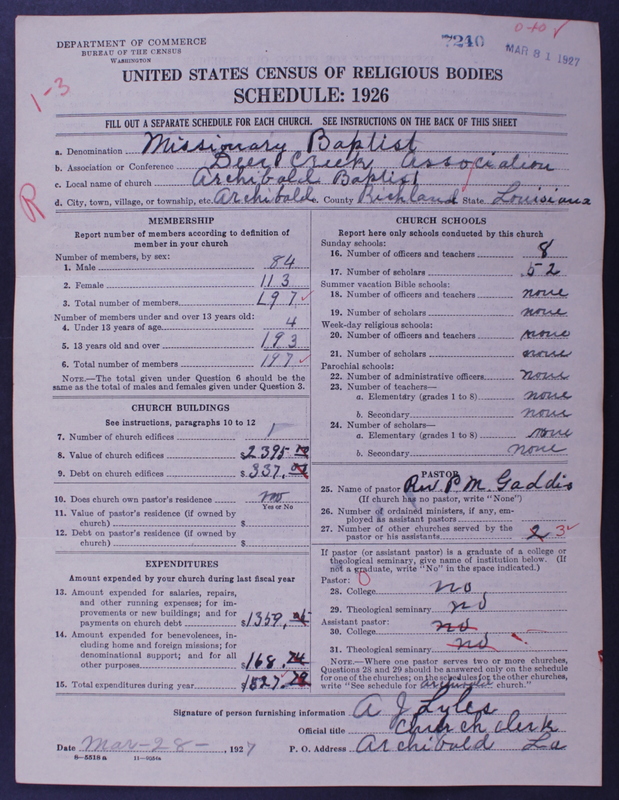 DEPARTMENT OF COMMERCE
BUREAU OF THE CENSUS
WASHINGTON
7240
MAR 31 1927
1-3
R
UNITED STATES CENSUS OF RELIGIOUS BODIES
SCHEDULE: 1926
FILL OUT A SEPARATE SCHEDULE FOR EACH CHURCH. SEE INSTRUCTIONS ON THE BACK OF THIS SHEET
a. Denomination Missionary Baptist
b. Association or Conference Deer Creek Association
c. Local name of church Archibald Baptist
d. City, town, village, or township, etc. Archibald e. County Richland State Louisiana
MEMBERSHIP
Report number of members according to definition of member in your church
Number of members, by sex:
1. Male 84
2. Female 113
3. Total number of members 197
Number of members under and over 13 years old:
4. Under 13 years of age 4
5. 13 years old and over 193
6. Total number of members 197
NOTE.—The total given under Question 6 should be the
same as the total of males and females given under Question 3.
CHURCH BUILDINGS
See instructions, paragraphs 10 to 12
7. Number of church edifices 1
8. Value of church edifices $2395
9. Debt on church edifices $337
10. Does church own pastor's residence no
Yes or No
11. Value of pastor's residence (if owned by
church) $
12. Debt on pastor's residence (if owned by
church) $
EXPENDITURES
Amount expended by your church during last fiscal year
13. Amount expended for salaries, repairs,
and other running expenses; for im-
provements or new buildings; and for
payments on church debt $1359
14. Amount expended for benevolences, in-
cluding home and foreign missions; for
denominational support; and for all
other purposes $168
15. Total expenditures during year $1527
CHURCH SCHOOLS
Report here only schools conducted by this church
Sunday schools:
16. Number of officers and teachers 8
17. Number of scholars 52
Summer vacation Bible schools:
18. Number of officers and teachers none
19. Number of scholars none
Week-day religious schools:
20. Number of officers and teachers none
21. Number of scholars none
Parochial schools:
22. Number of administrative officers none
23. Number of teachers—
a. Elementary (grades 1 to 8) none
b. Secondary none
24. Number of scholars—
a. Elementary (grades 1 to 8) none
b. Secondary none
PASTOR
25. Name of pastor Rev. P. M. Gaddis
(If church has no pastor, write "None")
26. Number of ordained ministers, if any, em-
ployed as assistant pastors
27. Number of other churches served by the
pastor or his assistants 2 3
If pastor (or assistant pastor) is a graduate of a college or
theological seminary, give name of institution below. (If
not a graduate, write "No" in the space indicated.)
Pastor:
28. College no
29. Theological seminary no
Assistant pastor:
30. College no
31. Theological seminary no
NOTE.—Where one pastor serves two or more churches,
Questions 28 and 29 should be answered only on the schedule
for one of the churches; on the schedules for the other churches,
write "See schedule for church."
Signature of person furnishing information A J Lyles
Official title Church clerk
Date Mar-28-, 1927 P. O. Address Archibald La
8-5518a 11-9256a